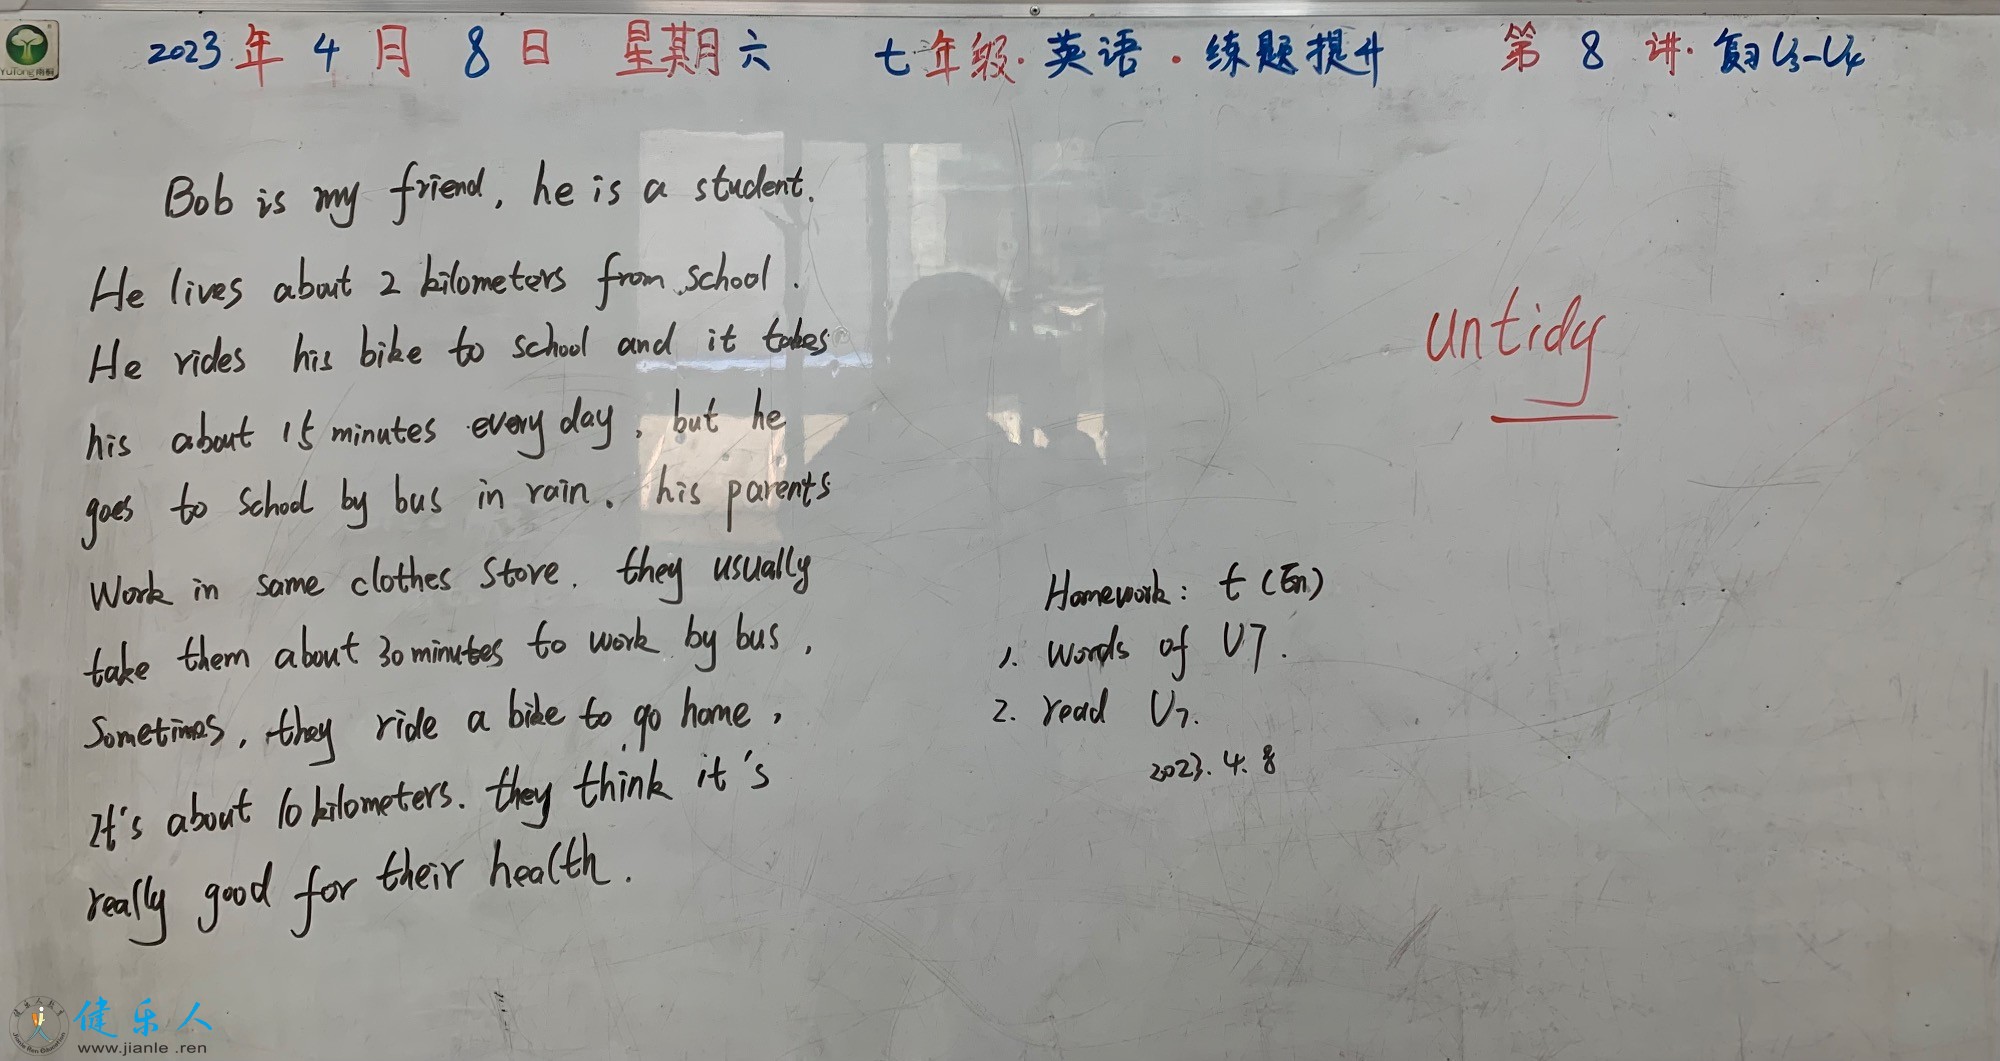 YuTong雨桐
2023年4月8日 星期六 七年级·英语·练题提升 第8讲·复习U3-U4
Bob is my friend, he is a student.
He lives about 2 kilometers from school.
He rides his bike to school and it takes
his about 15 minutes every day, but he
goes to school by bus in rain. his parents
Work in same clothes store. they usually
take them about 30 minutes to work by bus,
Sometimes, they ride a bike to go home,
It's about 10 kilometers. they think it's
really good for their health.
untidy
Homework: t (En)
1. words of U7.
2. read U7.
2023.4.8
健乐人
www.jianle.ren